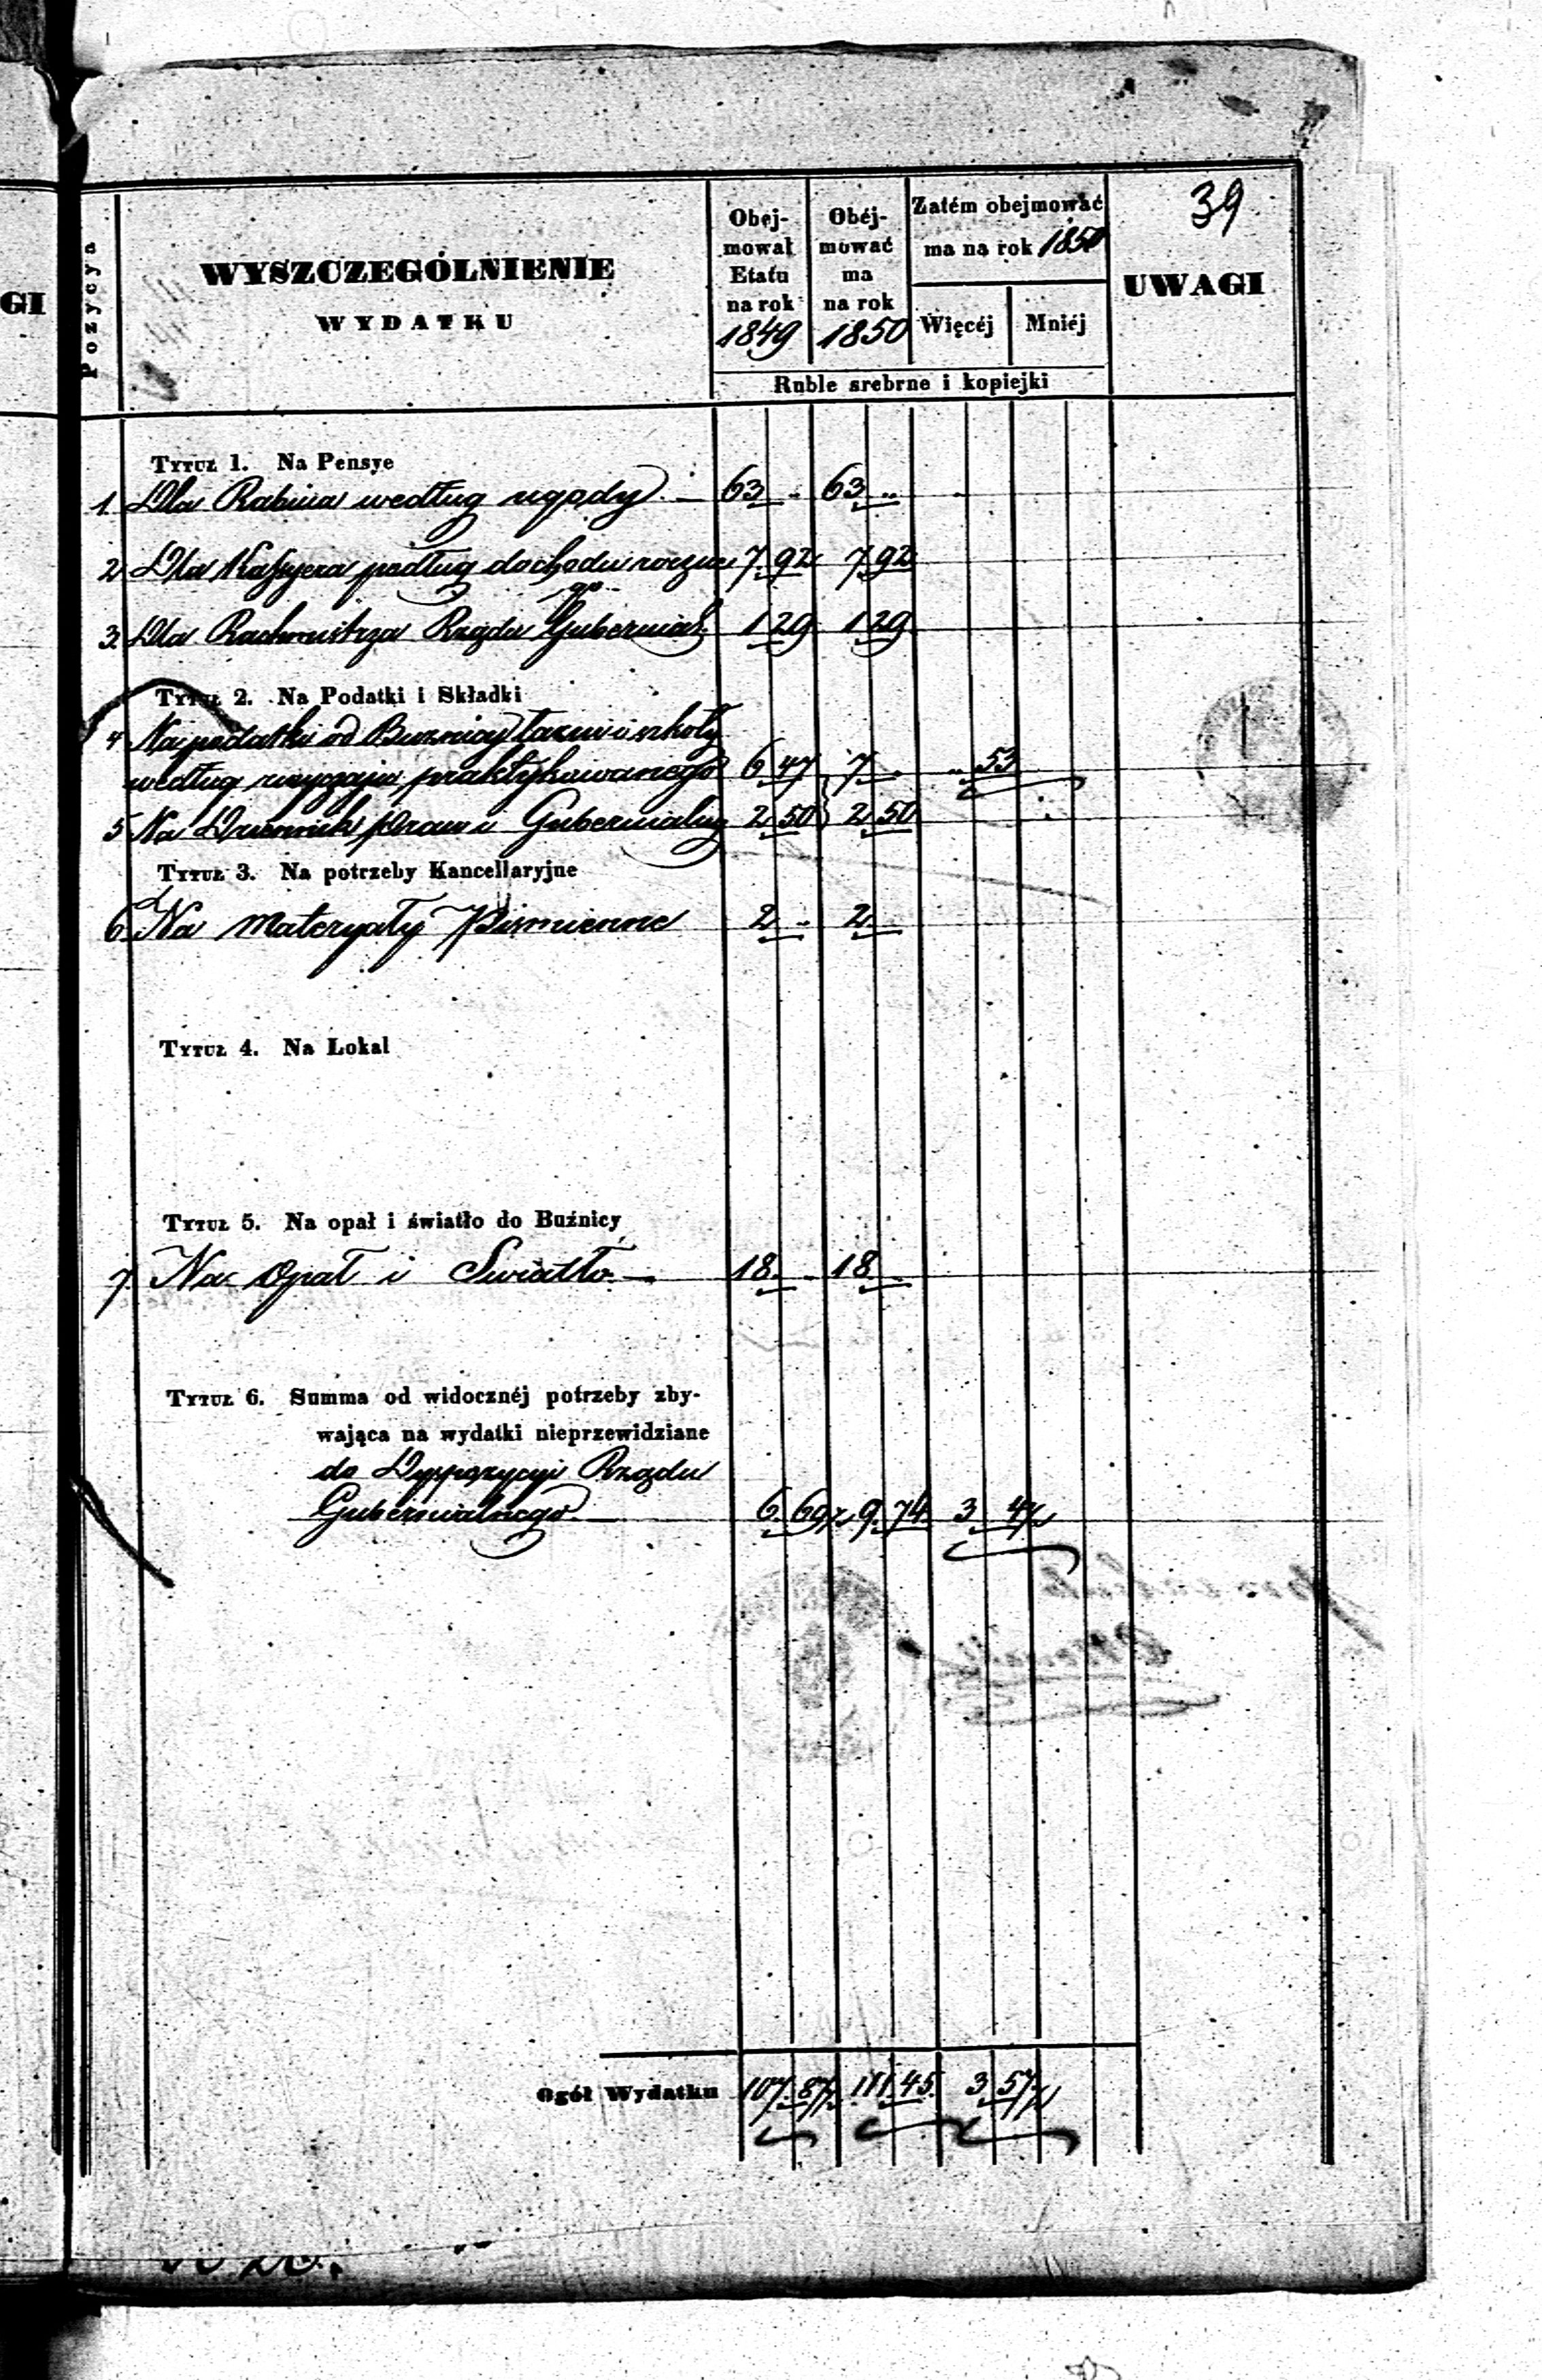 39
GI
Pozycya
WYSZCZEGÓLNIENIE
WYDATKU
Obej-
mował
Etatu
na rok
1849
Obéj-
mować
ma
na rok
1850
Zatém obejmować
ma na rok 1850
Więcéj
Mniéj
UWAGI
Ruble srebrne i kopiejki
Tytuł 1. Na Pensye
1 Dla Rabina według ugody 63 .. 63 ..
2 Dla Kassyera podług dochodu roczne 7. 92 7 92
go
3 Dla Rachmistrza Rządu Gubernial. 1 29 1 29
Tytuł 2. Na Podatki i Składki
4 Na podatki od Buznicy łazni i szkoły
według praktykowanego 6 47 7 .. .. 53
5 Na Dziennik praw i Gubernialny 2 50 2 50
Tytuł 3. Na potrzeby Kancellaryjne
6. Na Materyały Pismienne 2 .. 2 ..
Tytuł 4. Na Lokal
Tytuł 5. Na opał i światło do Buźnicy
7. Na Opał i Swiatło 18. .. 18 ..
Tytuł 6. Summa od widocznéj potrzeby zby-
wająca na wydatki nieprzewidziane
do Dyspozycyi Rządu
Gubernialnego 6. 69½ 9. 74 3 4½
Ogół Wydatku 107. 87½ 111. 45. 3 57½